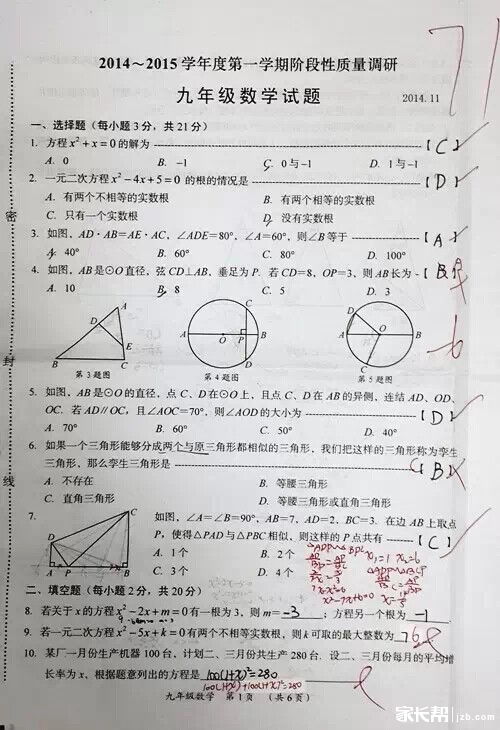 2014～2015 学年度第一学期阶段性质量调研
71
九年级数学试题
2014.11
一、选择题（每小题 3 分，共 21 分）
1. 方程 x²+x=0 的解为 【 C 】
A. 0 B. −1 C. 0 与 −1 D. 1 与 −1
2. 一元二次方程 x²−4x+5=0 的根的情况是 【 D 】
A. 有两个不相等的实数根 B. 有两个相等的实数根
C. 只有一个实数根 D. 没有实数根
3. 如图，AD·AB=AE·AC，∠ADE=80°，∠A=60°，则∠B 等于 【 A 】
A. 40° B. 60° C. 80° D. 100°
4. 如图，AB 是⊙O 直径，弦 CD⊥AB，垂足为 P. 若 CD=8，OP=3，则 AB 长为 【 B 】 A
A. 10 B. 8 C. 5 D. 3
A D E B C
第 3 题图
C A O P B D
第 4 题图
D A O B C
第 5 题图
-6
5. 如图，AB 是⊙O 的直径，点 C、D 在⊙O 上，且点 C、D 在 AB 的异侧，连结 AD、OD、
OC. 若 AD∥OC，且∠AOC=70°，则∠AOD 的大小为 【 D 】
A. 70° B. 60° C. 50° D. 40°
6. 如果一个三角形能够分成两个与原三角形都相似的三角形，我们把这样的三角形称为孪生
三角形，那么孪生三角形是 【 B 】
A. 不存在 B. 等腰三角形
C. 直角三角形 D. 等腰三角形或直角三角形
7. 如图，∠A=∠B=90°，AB=7，AD=2，BC=3. 在边 AB 上取点
P，使得△PAD 与△PBC 相似，则这样的 P 点共有 【 C 】
A. 1 个 B. 2 个
C. 3 个 D. 4 个
D C A P B
x²-7x+6=0
二、填空题（每小题 2 分，共 20 分）
8. 若关于 x 的方程 x²−2x+m=0 有一根为 3，则 m= −3 ；方程另一个根为 −1
9. 若一元二次方程 x²−5x+k=0 有两个不相等实数根，则 k 可取的最大整数为 7 6
10. 某厂一月份生产机器 100 台，计划二、三月份共生产 280 台. 设二、三月份每月的平均增
长率为 x，根据题意列出的方程是 100(1+x)²=280
100(1+x)+100(1+x)²=280
九年级数学 第 1 页 （共 6 页）
家长帮 jzb.com
密
封
线